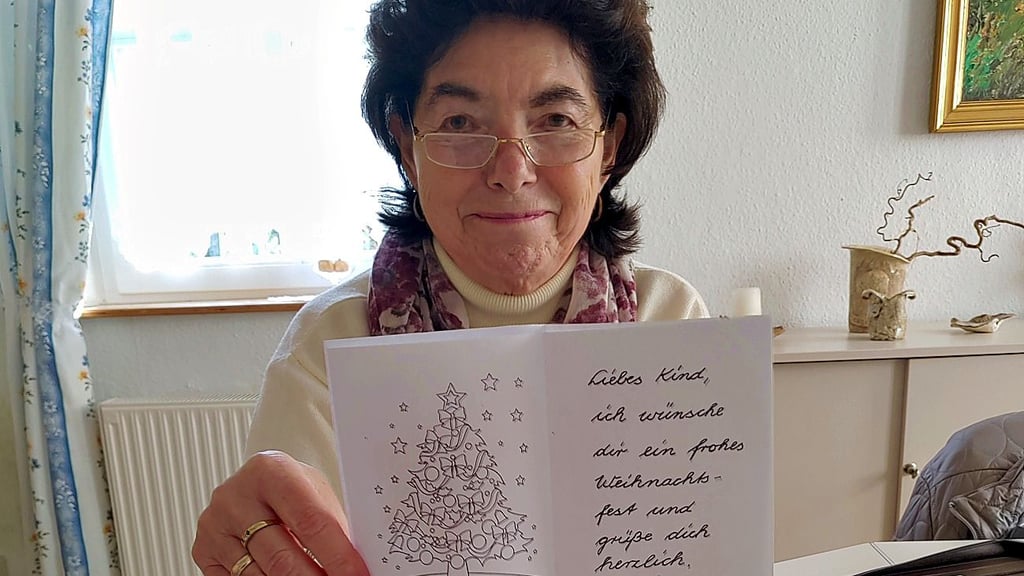 Liebes Kind,
ich wünsche
dir ein frohes
Weihnachts-
fest und
grüße dich
herzlich.